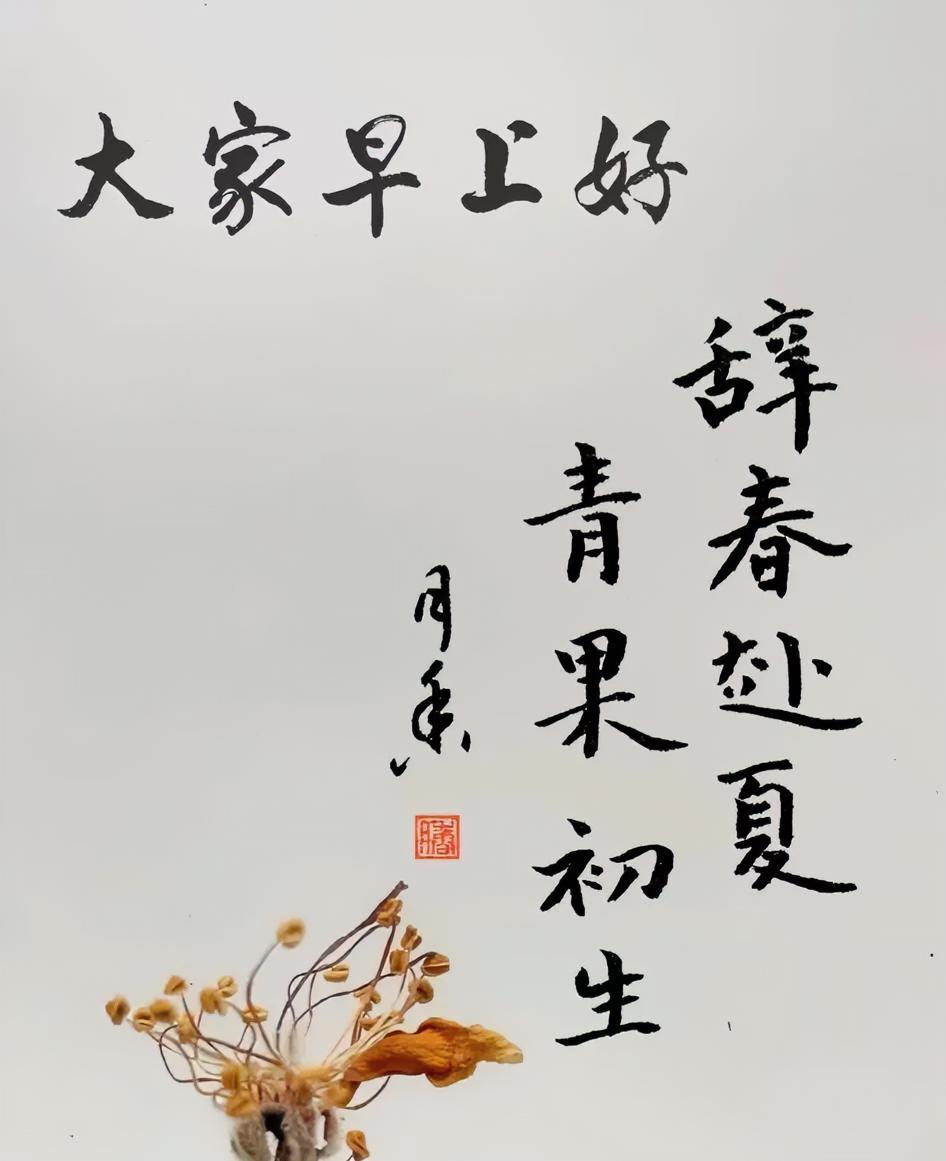 大家早上好
辞春赴夏
青果初生